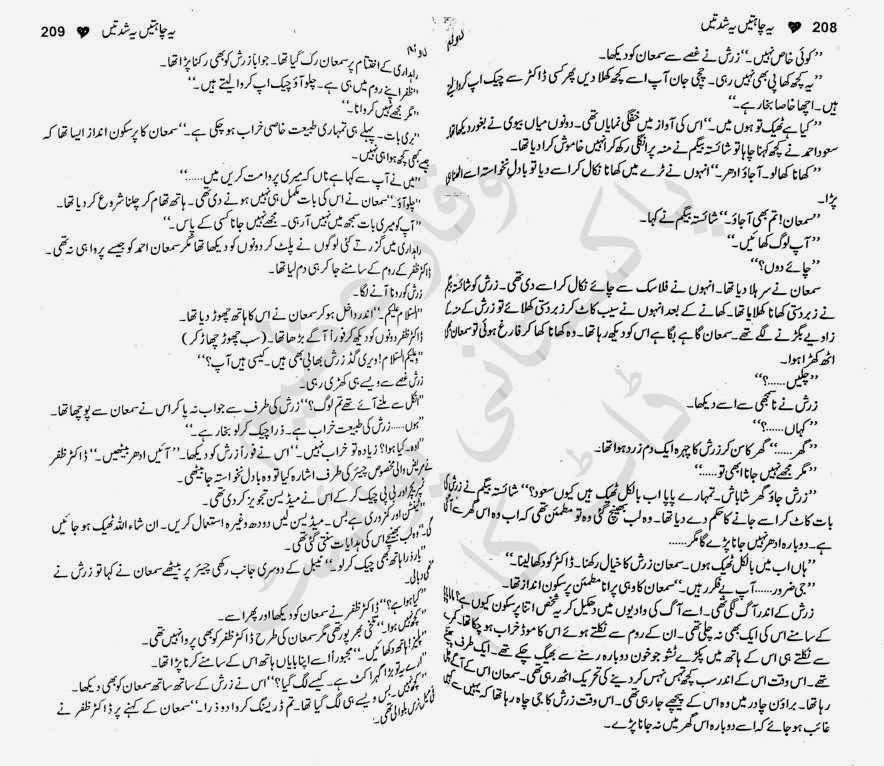 208 یہ چاہتیں یہ شدتیں
’’کوئی خاص نہیں۔‘‘ زرش نے غصے سے سمعان کو دیکھا۔
’’یہ کچھ کھا پی بھی نہیں رہی۔ چچی جان آپ اسے کچھ کھلا دیں پھر کسی ڈاکٹر سے چیک اپ کروا لیتے
ہیں۔ اچھا خاصا بخار ہے۔‘‘
’’کیا ہے ٹھیک تو ہوں میں۔‘‘ اس کی آواز میں خفگی نمایاں تھی۔ دونوں میاں بیوی نے بغور دیکھا تھا
سعود احمد نے کچھ کہنا چاہا تو شائستہ بیگم نے منہ پر انگلی رکھ کر انہیں خاموش کرا دیا تھا۔
’’کھانا کھا لو۔ آ جاؤ ادھر۔‘‘ انہوں نے ٹرے میں کھانا نکال کر اسے دیا تو بادل نخواستہ اسے اٹھانا
پڑا۔
’’سمعان! تم بھی آ جاؤ۔‘‘ شائستہ بیگم نے کہا۔
’’آپ لوگ کھائیں۔‘‘
’’چائے دوں؟‘‘
سمعان نے سر ہلا دیا تھا۔ انہوں نے فلاسک سے چائے نکال کر اسے دی تھی۔ زرش کو شائستہ بیگم
نے زبردستی کھانا کھلایا تھا۔ کھانے کے بعد انہوں نے سیب کاٹ کر زبردستی کھلائے تو زرش کے منہ کے
زاویے بگڑنے لگے تھے۔ سمعان گاہے بگاہے اس کو دیکھ رہا تھا۔ وہ کھانا کھا کر فارغ ہوئی تو سمعان
اٹھ کھڑا ہوا۔
’’چلیں……؟‘‘
زرش نے ناسمجھی سے اسے دیکھا۔
’’کہاں……؟‘‘
’’گھر……‘‘ گھر کا سن کر زرش کا چہرہ ایک دم زرد ہوا تھا۔
’’مگر مجھے نہیں جانا ابھی تو……‘‘
’’زرش جاؤ گھر شاباش۔ تمہارے پاپا اب بالکل ٹھیک ہیں کیوں سعود؟‘‘ شائستہ بیگم نے زرش کی
بات کاٹ کر اسے جانے کا حکم دے دیا تھا۔ وہ لب بھینچ گئی وہ تو مطمئن تھی کہ اب وہ اس گھر سے آ گئی
ہے۔ دوبارہ ادھر نہیں جانا پڑے گا مگر……
’’ہاں اب میں بالکل ٹھیک ہوں۔ سمعان زرش کا خیال رکھنا۔ ڈاکٹر کو دکھا لینا۔‘‘
’’جی ضرور…… آپ بے فکر رہیں۔‘‘ سمعان کا وہی پرانا مطمئن پر سکون انداز تھا۔
زرش کے اندر آگ لگی تھی۔ اسے آگ کی وادیوں میں دھکیل کر یہ شخص اتنا پر سکون کیوں ہے؟ ماما پاپا
کے سامنے اس کی ایک بھی نہ چلی تھی۔ ان کے روم سے نکلتے ہوئے اس کا موڈ خراب ہو چکا تھا۔
سے نکلتے ہی اس کے ہاتھ میں پکڑے ٹشو جو خون دوبارہ رسنے سے بھیگ چکے تھے۔ ایک طرف
تھے۔ اس وقت اس کے اندر سب کچھ تہس نہس کر دینے کی تحریک اٹھ رہی تھی۔ سمعان اس کے آگے چل
رہا تھا۔ براؤن چادر میں وہ اس کے پیچھے جا رہی تھی۔ اس وقت زرش کا جی چاہ رہا تھا کہ یہیں سے کہیں
غائب ہو جائے کہ اسے دوبارہ اس گھر میں نہ جانا پڑے۔
یہ چاہتیں یہ شدتیں 209
راہداری کے اختتام پر سمعان رک گیا تھا۔ جواباً زرش کو بھی رکنا پڑا تھا۔
’’ظفر اپنے روم میں ہی ہے۔ چلو آؤ چیک اپ کروا لیتے ہیں۔‘‘
’’مگر مجھے نہیں کروانا۔‘‘
’’بری بات۔ پہلے ہی تمہاری طبیعت خاصی خراب ہو چکی ہے۔‘‘ سمعان کا پر سکون انداز ایسا تھا کہ
جیسے کبھی کچھ ہوا ہی نہیں۔
’’میں نے آپ سے کہا ہے ناں کہ میری پروا مت کریں میں……‘‘
’’چلو آؤ۔‘‘ سمعان نے اس کی بات مکمل ہی نہیں ہونے دی تھی۔ ہاتھ تھام کر چلنا شروع کر دیا تھا۔
’’آپ کو میری بات سمجھ میں نہیں آ رہی۔ مجھے نہیں جانا کسی کے پاس۔‘‘
راہداری میں گزرتے کئی لوگوں نے پلٹ کر دونوں کو دیکھا تھا مگر سمعان احمد کو جیسے پروا ہی نہ تھی۔
ڈاکٹر ظفر کے روم کے سامنے جا کر ہی دم لیا تھا۔
زرش کو رونا آنے لگا۔
’’السلام علیکم۔‘‘ اندر داخل ہو کر سمعان نے اس کا ہاتھ چھوڑ دیا تھا۔
ڈاکٹر ظفر دونوں کو دیکھ کر فوراً آگے بڑھا تھا۔ (سب چھوڑ چھاڑ کر)
’’وعلیکم السلام! ویری گڈ زرش بھابی بھی ہیں۔ کیسی ہیں آپ؟‘‘
زرش غصے سے ویسے ہی کھڑی رہی۔
’’انکل سے ملنے آئے تھے تم لوگ؟‘‘ زرش کی طرف سے جواب نہ پا کر اس نے سمعان سے پوچھا تھا۔
’’ہوں…… زرش کی طبیعت خراب ہے۔ ذرا چیک کر لو بخار ہے۔‘‘
’’اوہ۔ کیا ہوا؟ زیادہ تو خراب نہیں۔‘‘ اس نے فوراً زرش کو دیکھا۔ ’’آئیں ادھر بیٹھیں۔‘‘ ڈاکٹر ظفر
نے مریض والی مخصوص چیئر کی طرف اشارہ کیا تو وہ بادل نخواستہ جا بیٹھی۔
ٹمپریچر اور بی پی چیک کر کے اس نے میڈیسن تجویز کر دی تھی۔
’’ٹینشن اور کمزوری ہے بس۔ میڈیسن لیں دودھ وغیرہ استعمال کریں۔ ان شاء اللہ ٹھیک ہو جائیں
گی۔‘‘ وہ لب بھینچے اس کی ہدایات سنتی گئی تھی۔
’’یار ذرا ہاتھ بھی چیک کر لو۔‘‘ ٹیبل کے دوسری جانب رکھی چیئر پر بیٹھے سمعان نے کہا تو زرش نے
’’کیا ہوا ہے؟‘‘ ڈاکٹر ظفر نے سمعان کو دیکھا اور پھر اسے۔
’’کچھ نہیں ہوا۔‘‘ تلخی بھر پور تھی مگر سمعان کی طرح ڈاکٹر ظفر کو بھی پروا نہیں تھی۔
’’پلیز! ہاتھ دکھائیں۔‘‘ مجبوراً اسے اپنا بایاں ہاتھ اس کے سامنے کرنا پڑا تھا۔
’’ارے یہ تو بڑا گہرا کٹ ہے۔ کیسے لگ گیا؟‘‘ اس نے زرش کے ساتھ ساتھ سمعان کو بھی دیکھا۔
’’کچھ نہیں۔ بس ویسے ہی لگ گیا تھا۔ تم ڈریسنگ کروا دو ذرا۔‘‘ سمعان کے کہنے پر ڈاکٹر ظفر نے
نرس بلوائی تھی۔